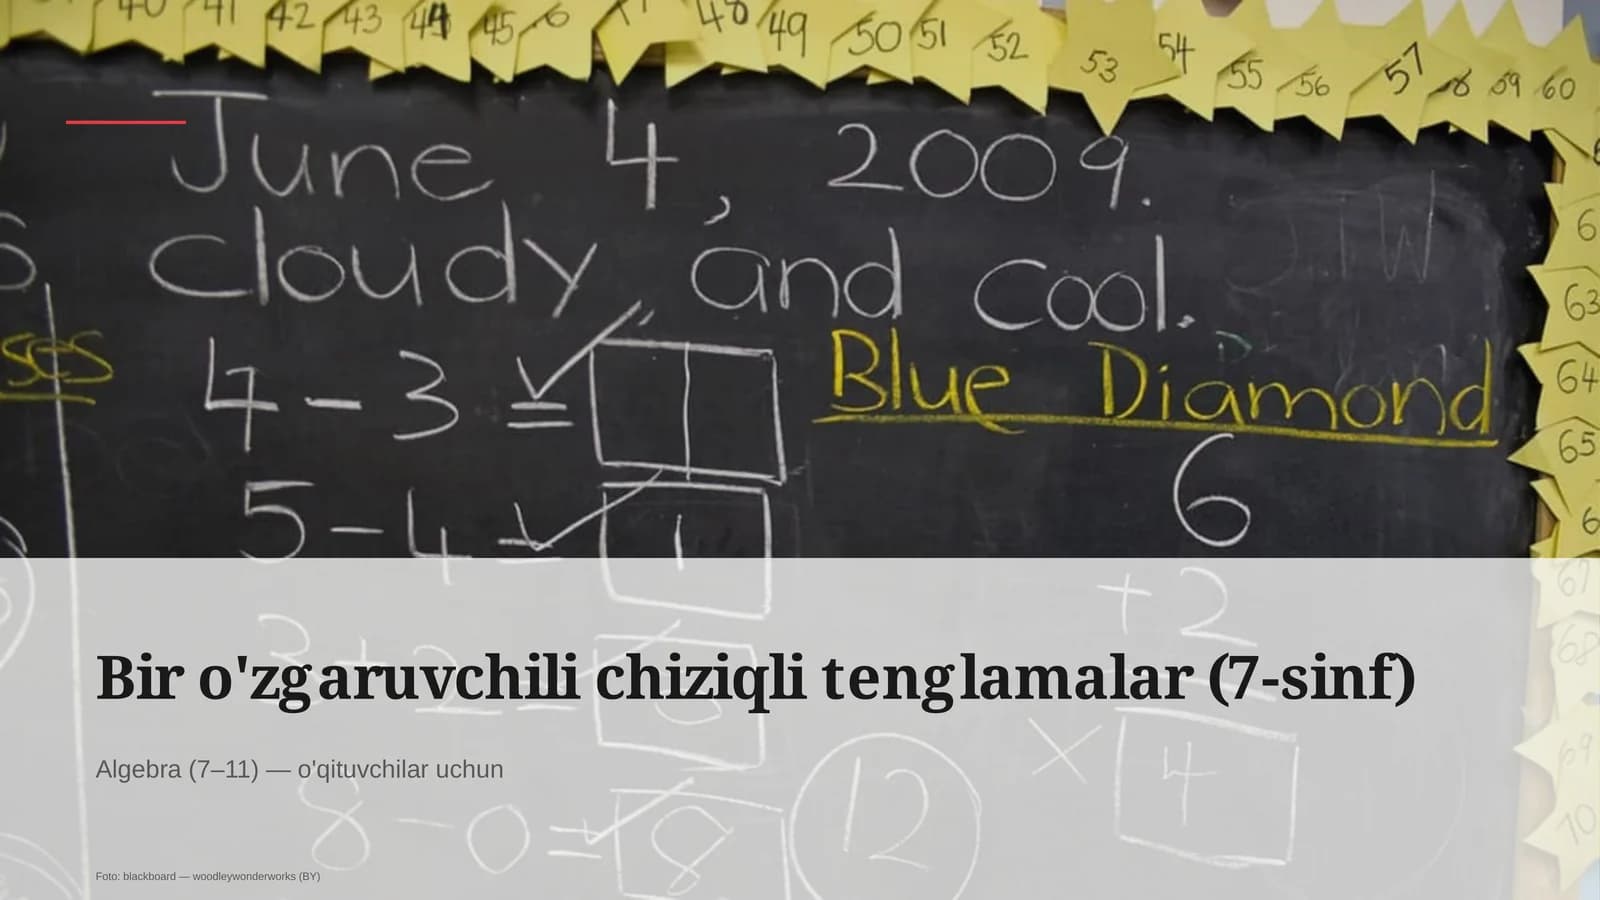 40 41 42 43 44 45 48 49 50 51 52 53 54 55 56 57 58 59 60
June 4, 2009.
cloudy and cool.
4 - 3 =
Blue Diamond
5 - 4 = 1
6
+2
3 + 2 =
× 4
12
8 - 0 = 8
63
64
65
67
68
69
70
Bir o'zgaruvchili chiziqli tenglamalar (7-sinf)
Algebra (7–11) — o'qituvchilar uchun
Foto: blackboard — woodleywonderworks (BY)